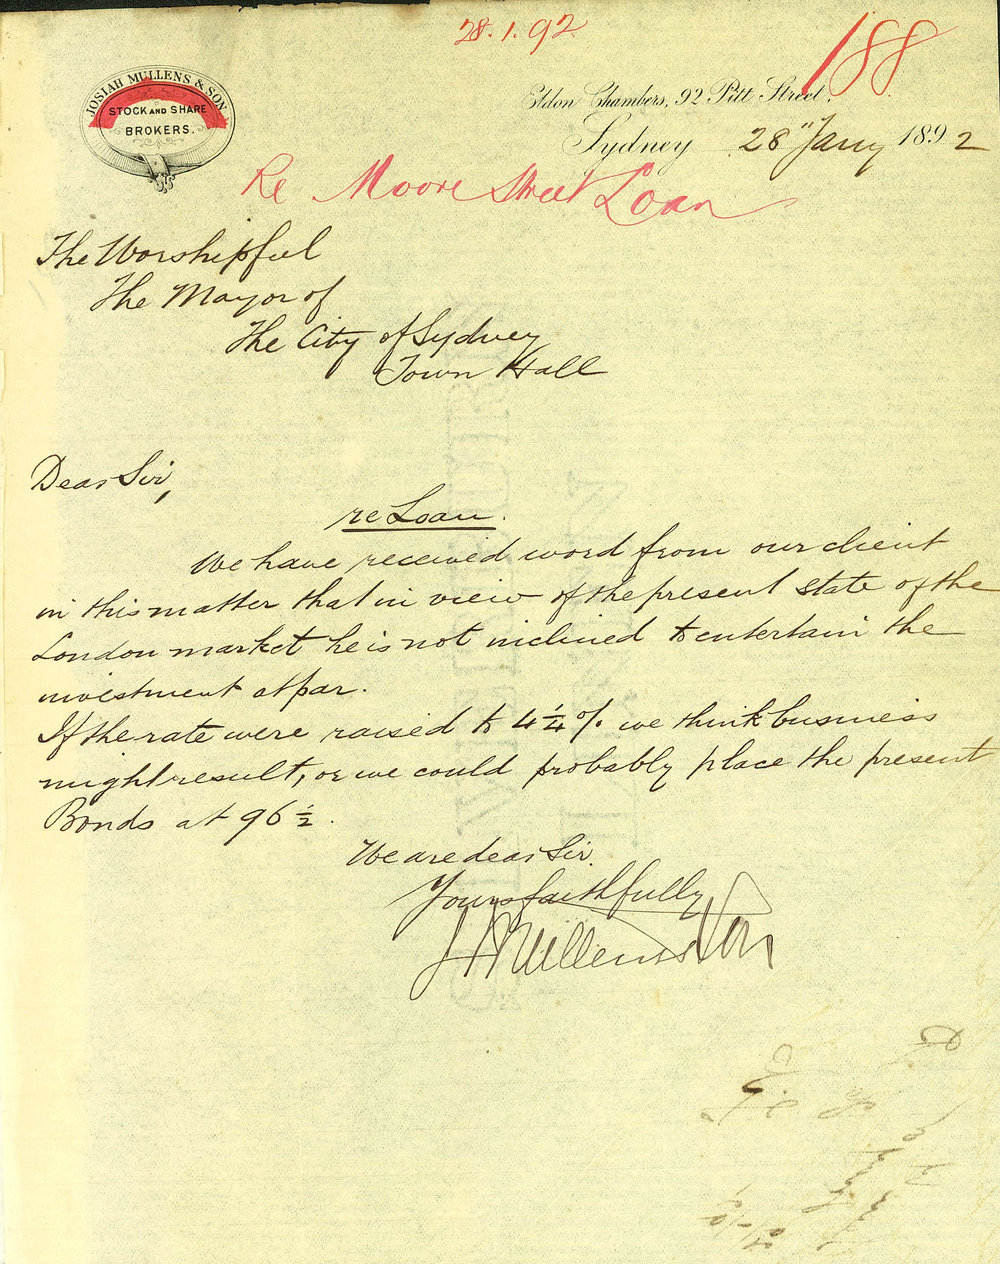 28.1.92
188
JOSIAH MULLENS & SON
STOCK AND SHARE
BROKERS.
Eldon Chambers, 92 Pitt Street,
Sydney 28" Jany 1892
Re Moore Street Loan
The Worshipful
The Mayor of
The City of Sydney
Town Hall
Dear Sir,
re Loan.
We have received word from our client
in this matter that in view of the present state of the
London market he is not inclined to entertain the
investment at par.
If the rate were raised to 4 1/4 % we think business
might result, or we could probably place the present
Bonds at 96 1/2.
We are dear Sir.
Yours faithfully
J Mullens & Son